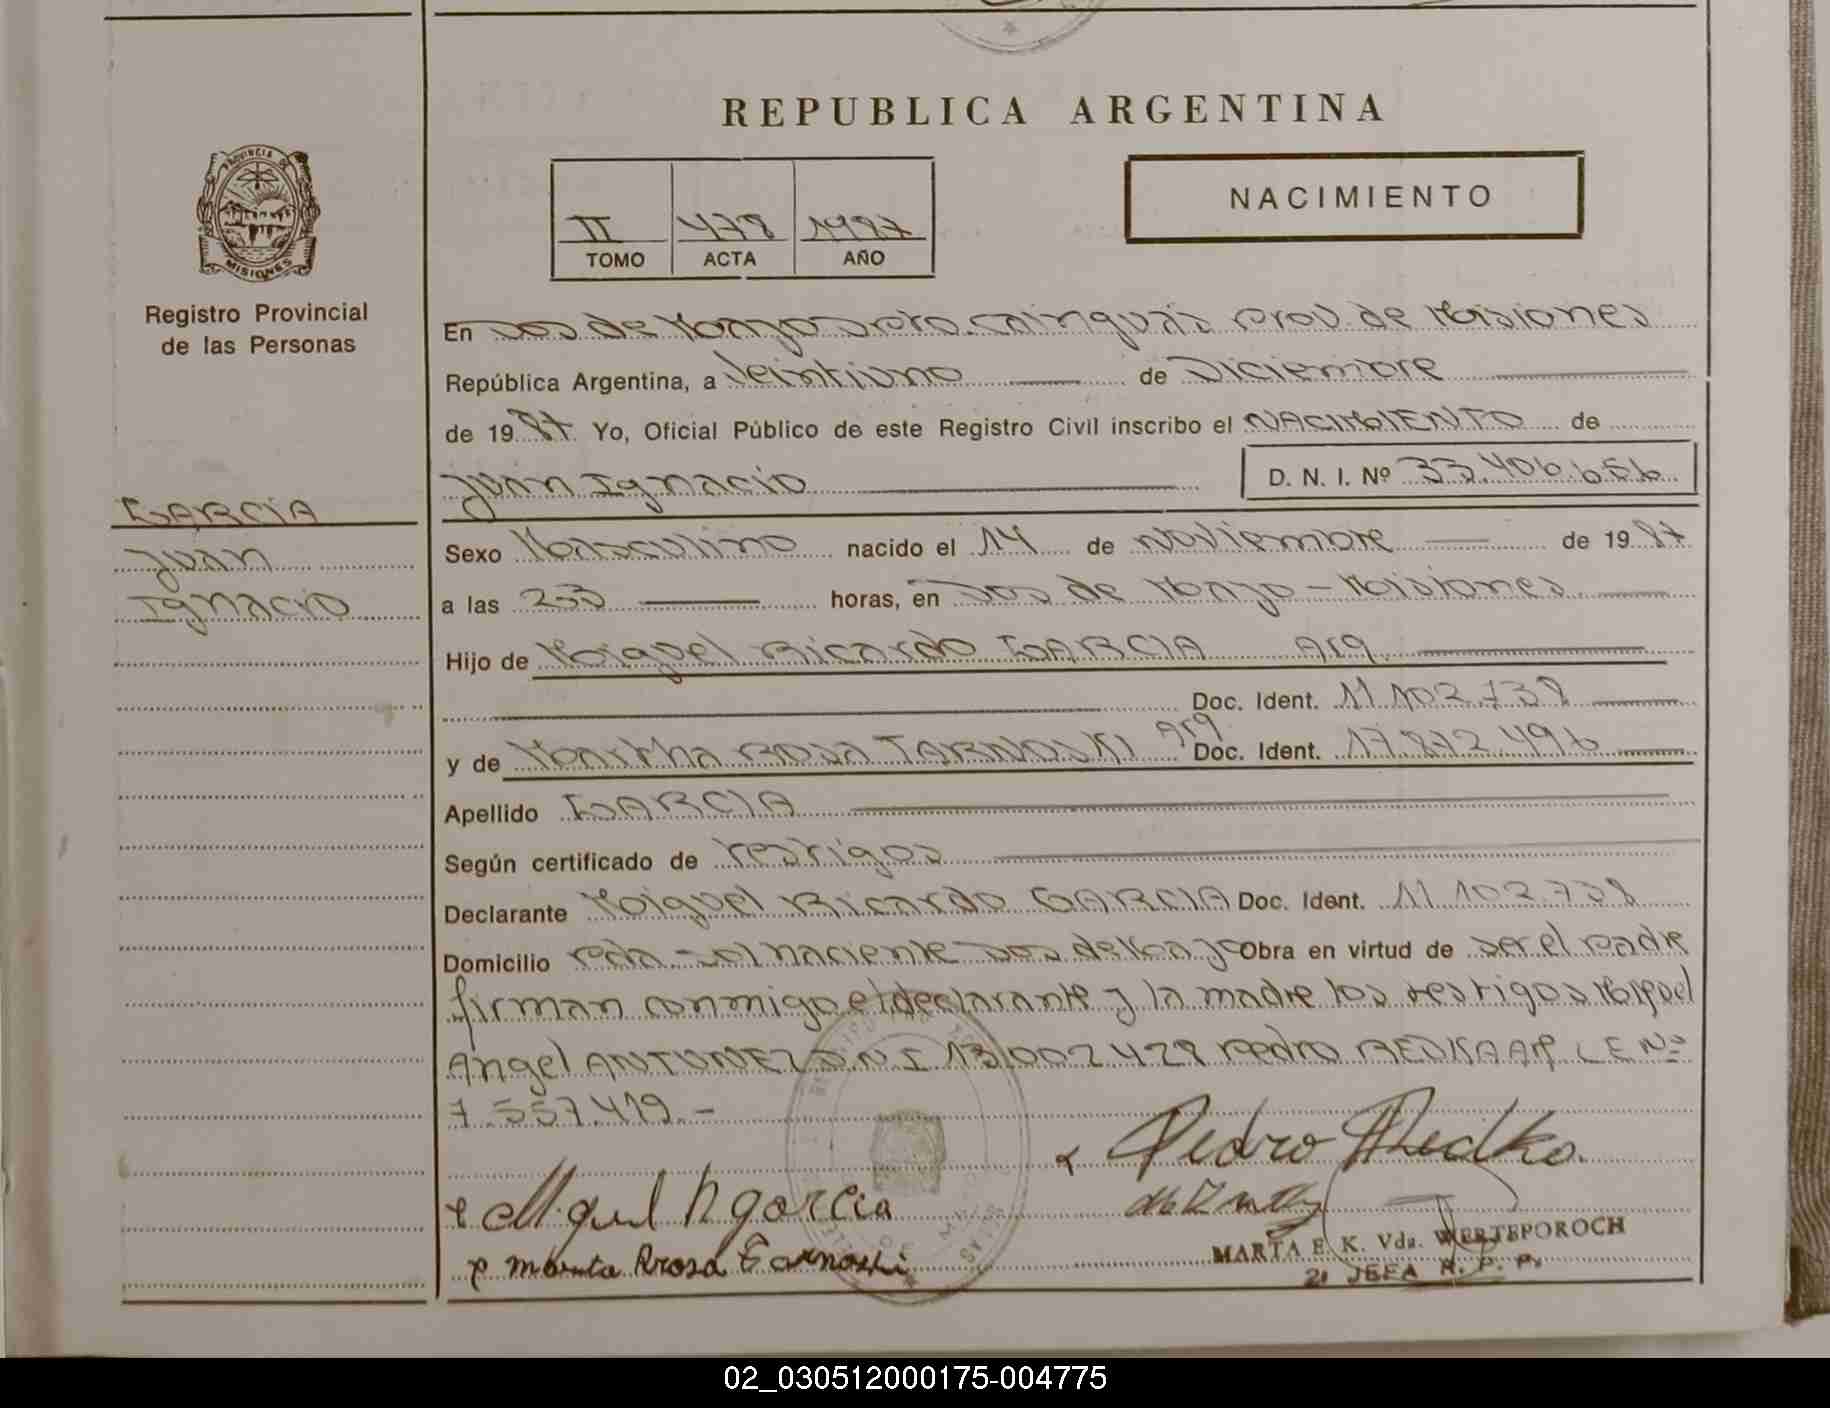 REPUBLICA ARGENTINA
PROVINCIA DE
MISIONES
Registro Provincial
de las Personas
II 478 1987
TOMO ACTA AÑO
NACIMIENTO
En Dos de Mayo Dpto. Cainguás Prov. de Misiones
República Argentina, a Veintiuno de Diciembre
de 1987 Yo, Oficial Público de este Registro Civil inscribo el NACIMIENTO de
Juan Ignacio D. N. I. Nº 33.406.656
GARCIA
Juan
Ignacio
Sexo Masculino nacido el 14 de Noviembre de 1987
a las horas, en Dos de Mayo - Misiones
Hijo de Miguel Ricardo GARCIA Arg
Doc. Ident. 11.102.738
y de Martha Rosa TARNOSKI Arg Doc. Ident. 17.872.496
Apellido GARCIA
Según certificado de testigos
Declarante Miguel Ricardo GARCIA Doc. Ident. 11.102.738
Domicilio Pcda Sol Naciente Dos de Mayo Obra en virtud de ser el Padre
firman conmigo el declarante y la madre los testigos Miguel
Angel ANTUNEZ D.N.I 13.002.428 Pedro L E Nº
7.557.419.-
Pedro Redko.
Miguel R garcia
Marta Rrosa Tarnoski
MARTA E. K. Vda. WERTEPOROCH
2ª JEFA R. P. P.
02_030512000175-004775